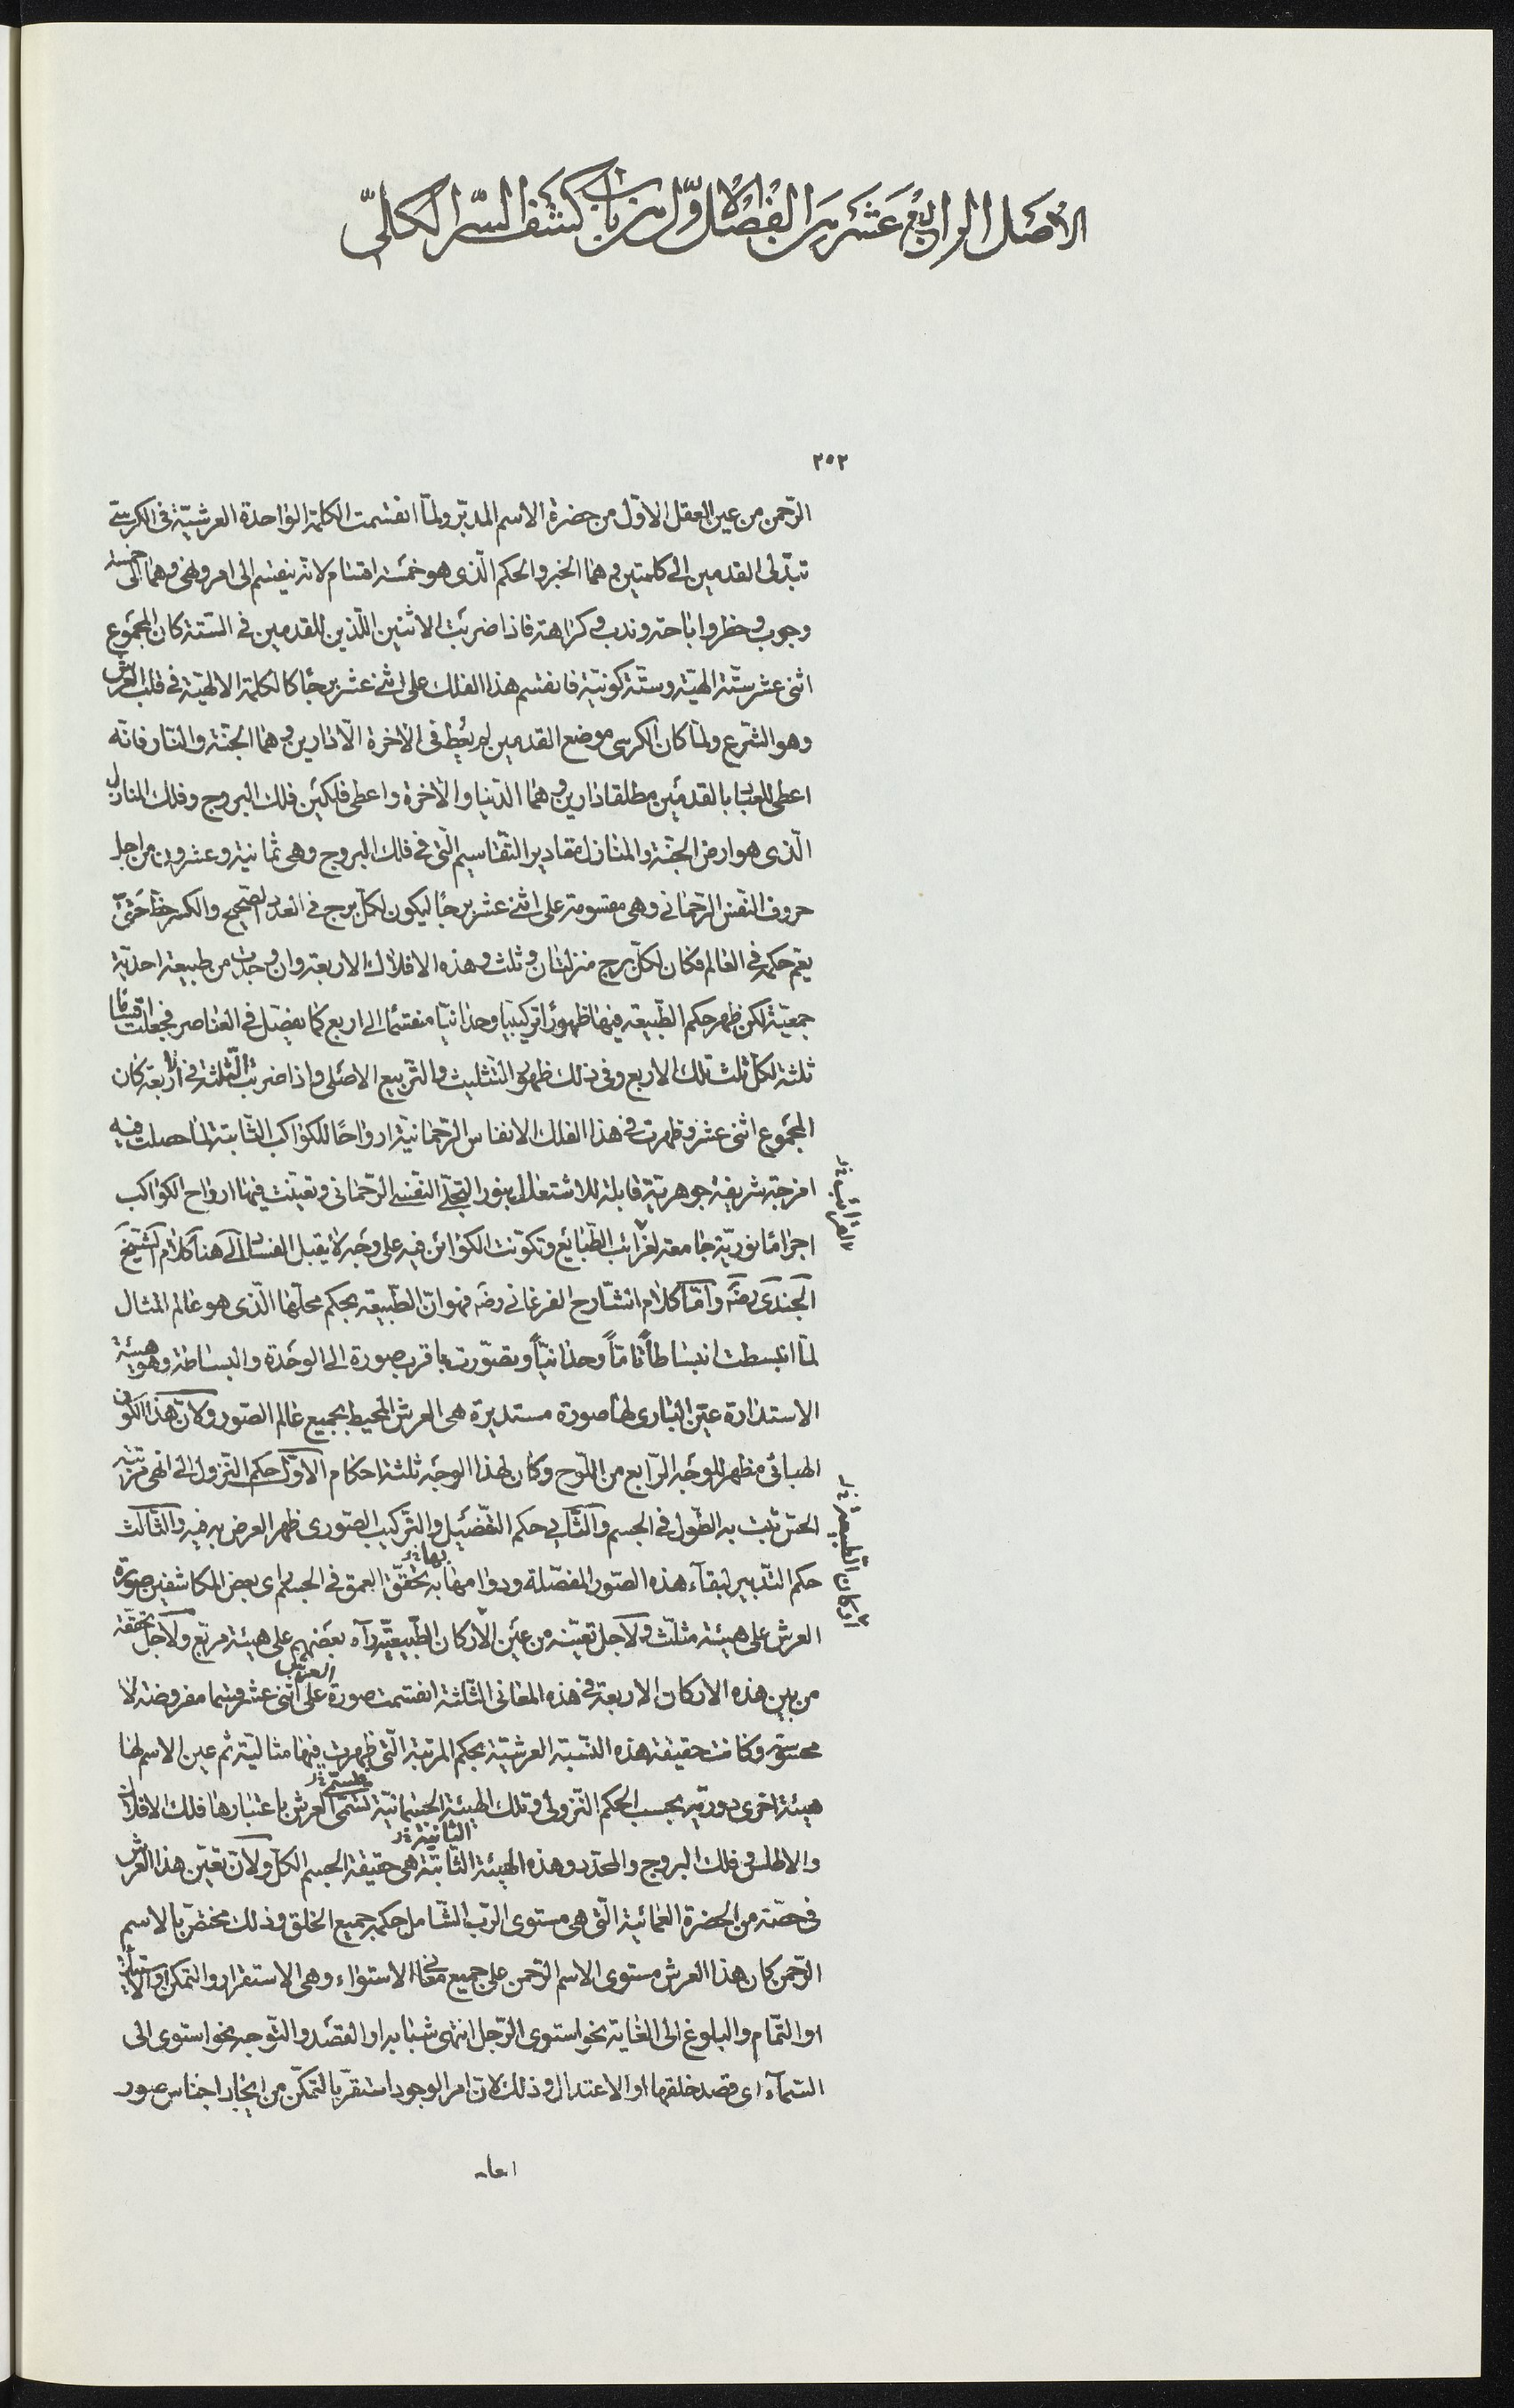 الاصل الرابع عشر من الفصل الاول من باب كشف السر الكلي
٢٥٢
الرّحمن من عين العقل الاوّل من حضرة الاسم المدبّر ولمّا انقسمت الكلمة الواحدة العرشيّة فى الكرسىّ
بتدلى القدمين الى كلمتين وهما الخبر والحكم الّذى هو خمسة اقسام لانه ينقسم الى امر ونهى وهما الى خمسة
وجوب وحظر واباحة وندب وكراهة فاذا ضربت الاثنين اللّذين للقدمين فى الستّة كان المجموع
اثنى عشر ستّة الهيّة وستّة كونيّة فانقسم هذا الفلك على اثنى عشر برجًا كالكلمة الالهيّة فى قلب العرش
وهو الشّرع ولمّا كان الكرسى موضع القدمين لم يعط فى الاخرة الّا دارين وهما الجنّة والنار فانّه
اعطى للعبا بالقدمين مطلقا دارين وهما الدّنيا والاخرة واعطى فلكين فلك البروج وفلك المنازل
الّذى هو ارض الجنّة والمنازل مقادير التّقاسيم الّتى فى فلك البروج وهى ثمانية وعشرون من اجل
حروف النّفس الرّحمانى وهى مقسومة على اثنى عشر برجًا ليكون لكلّ برج فى العدد الصّحيح والكسر حظّ حتىّ
يعمّ حكمه فى العالم فكان لكلّ برج منزلتان وثلث وهذه الافلاك الاربعة وان وجدت من طبيعة احديّة
جمعيّة لكن ظهر حكم الطّبيعة فيها ظهورًا تركيبيّا وحدانيّا منقسمًا الى اربع كما يفصّل فى العناصر فجعلت اقسامًا
ثلثة لكلّ ثلث تلك الاربع وفى ذلك ظهور التثليث والتّربيع الاصلى واذا ضربت الثّلثة فى الاربعة كان
المجموع اثنى عشر وظهرت فى هذا الفلك الانفاس الرّحمانيّة ارواحًا للكواكب الثّابتة لمّا حصلت فيه
امزجة شريفة جوهريّة قابلة للاشتعال بنور التجلّى النّفسى الرّحمانى وتعيّنت فيها ارواح الكواكب
اجرامًا نوريّة جامعة لغرائب الطّبائع وتكوّنت الكوائن فيه على وجه لا يقبل الفساد الى هنا كلام الشّيخ
الجندى رضه وامّا كلام الشّارح الفرغانى رضه فهو انّ الطّبيعة بحكم محلّها الّذى هو عالم المثال
لمّا انبسطت انبساطاً تامّاً وحدانيّاً وتصوّرت باقرب صورة الى الوحدة والبساطة وهو هيئة
الاستدارة عيّن البارى لها صورة مستديرة هى العرش المحيط بجميع عالم الصّور ولانّ هذا الكون
الهبائى مظهر للوجه الرّابع من اللّوح وكان لهذا الوجه ثلثة احكام الاوّل حكم التّنزّول الى انهى مرتبة
الحسّ ثبت به الطّول فى الجسم والثّانى حكم التّفصيل والتّركيب الصّورى ظهر العرض به فيه والثّالث
حكم التّدبير لبقآء هذه الصّور المفصّلة ودوامها به تحقّق العمق فى الجسم راى بعض المكاشفين صورة
بها
العرش على هيئة مثلّث ولاجل تعيّنه من عين الاركان الطّبيعيّة رآه بعضهم على هيئة مربّع ولاجل تحقّقه
من بين هذه الاركان الاربعة فى هذه المعانى الثّلثة انقسمت صورة العرش على اثنى عشر قسما مفروضة لا
محسوسة وكانت حقيقة هذه النّسبة العرشيّة بحكم المرتبة الّتى ظهرت فيها مثاليّة ثم عين الاسم لها
هيئة اخرى دوريّة بحسب الحكم التّنزولى وتلك الهيئة الجسمانيّة تسمّى العرش باعتبارها فلك الافلاك
والاطلس وفلك البروج والمحدّد وهذه الهيئة الثّابتة هى حقيقة الجسم الكلّ ولانّ تعيّن هذا العرش
الثانية
فى حصّته من الحضرة العمائيّة الّتى هى مستوى الرّبّ الشّامل حكمه جميع الخلق وذلك مختصّ بالاسم
الرّحمن كان هذا العرش مستوى الاسم الرّحمن على جميع معانى الاستواء وهى الاستقرار والتمكّن او الاستيلاء
او التّمام والبلوغ الى الغاية نحو استوى الرّجل انتهى شبابه او القصد والتّوجه نحو استوى الى
السّمآء اى قصد خلقها او الاعتدال وذلك لانّ امر الوجود استقرّ بالتّمكّن من ايجاد اجناس صور
الغرائب
اركان الطبيعة